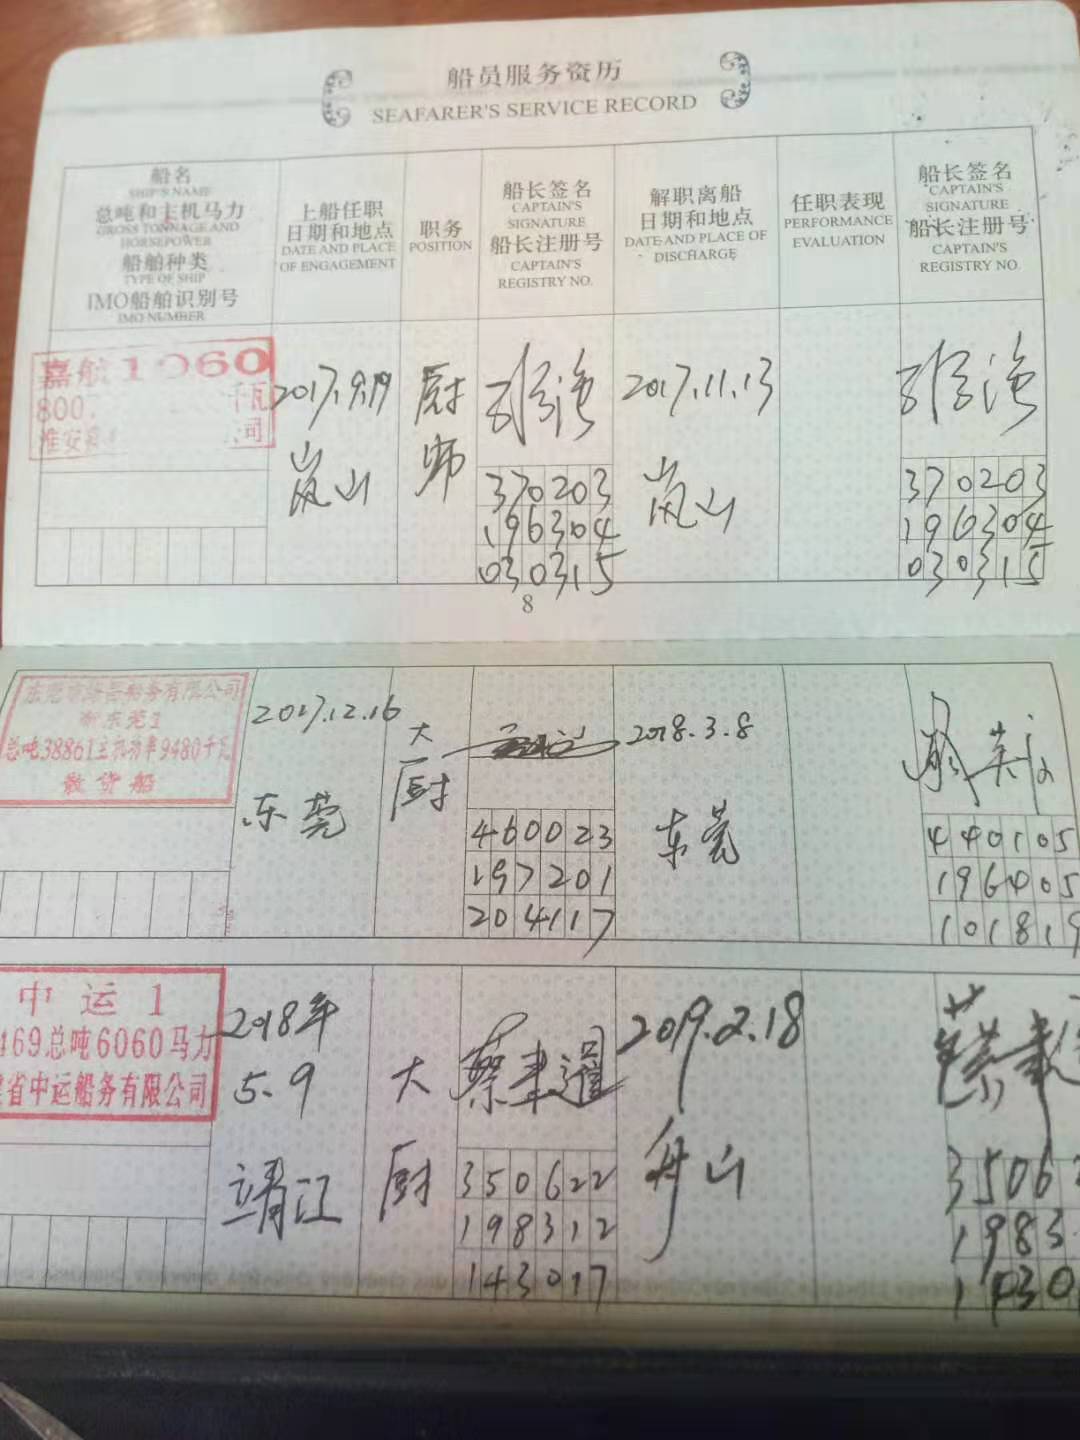 船员服务资历
SEAFARER'S SERVICE RECORD
船名
SHIP'S NAME
总吨和主机马力
GROSS TONNAGE AND
HORSEPOWER
船舶种类
TYPE OF SHIP
IMO船舶识别号
IMO NUMBER
上船任职
日期和地点
DATE AND PLACE
OF ENGAGEMENT
职务
POSITION
船长签名
CAPTAIN'S
SIGNATURE
船长注册号
CAPTAIN'S
REGISTRY NO.
解职离船
日期和地点
DATE AND PLACE OF
DISCHARGE
任职表现
PERFORMANCE
EVALUATION
船长签名
CAPTAIN'S
SIGNATURE
船长注册号
CAPTAIN'S
REGISTRY NO.
嘉航1060
800
千瓦
淮安
公司
2017.9.19
岚山
厨师
370203
196304
030315
2017.11.13
岚山
370203
196304
030315
8
船务有限公司
新东莞1
总吨38861主机功率9480千瓦
散货船
2017.12.16
东莞
大厨
460023
197201
204117
2018.3.8
东莞
440105
196405
101819
中运1
469总吨6060马力
省中运船务有限公司
2018年
5.9
靖江
大厨
350622
198312
143017
2019.2.18
舟山
35062
1983
1430